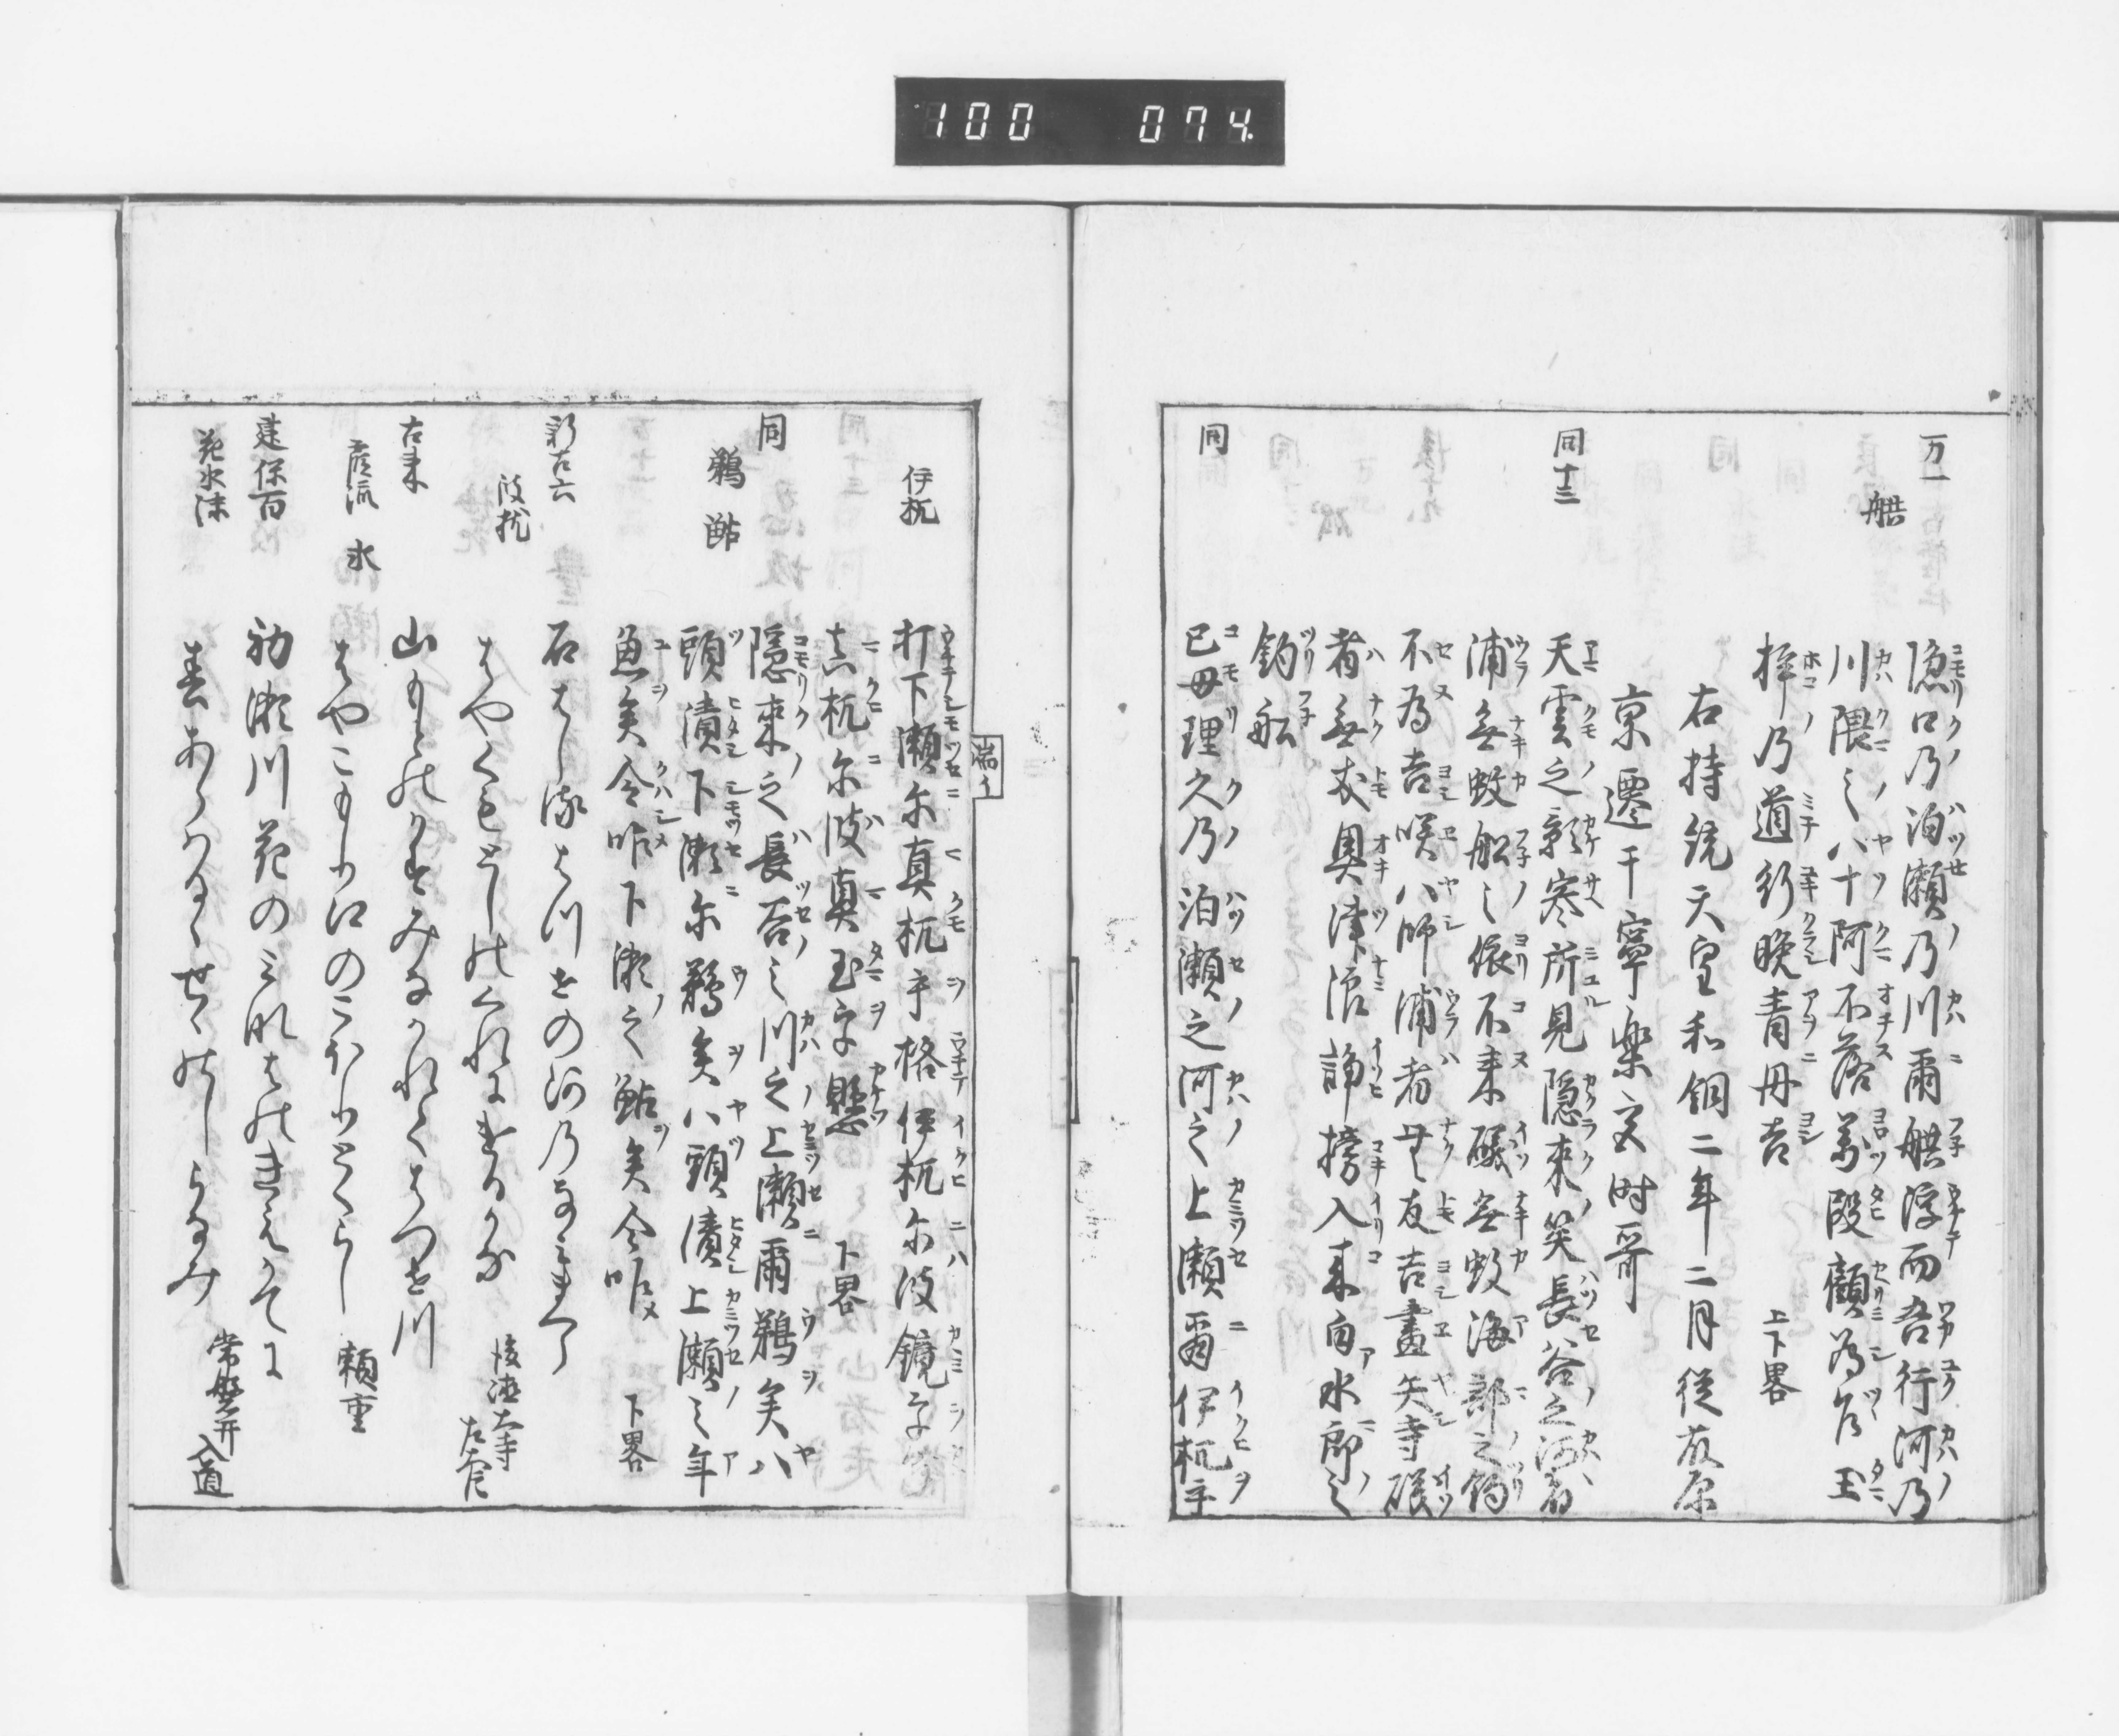 100 074.
万一
舼
隠口乃泊瀬乃川爾舼浮而吾行河乃
川隈之八十阿不落万段顧為乍玉
桙乃道行晚青丹吉 上下畧
右持統天皇和銅二年二月従故原
京遷于寧楽宮時哥
同十三
天雲之影寒所見隠来笶長谷之河者
浦無蚊船之依不来礒無蚊海部之釣
不為吉咲八師浦者無友吉畫矢寺礒
者無友奥津浪諍搒入来白水郎之
釣船
同
己母理久乃泊瀬之河之上瀬爾伊杭乎
伊杭
打下瀬尓真杭乎格伊杭尓波鏡乎
真杭尓波真玉乎懸 下畧
同
鵜 鮎
隠来之長谷之川之上瀬爾鵜矣八
頭漬下瀬尓鵜矣八頭漬上瀬之年
魚矣令咋下瀬之鮎矣令咋 下畧
新古六
石はしるはつせの河乃なみまくら
波枕
はやくもとしのくれにけるかな 後徳大寺左大臣
古来
山もとのかすみなかれてはつせ川
落流 氷
はやこもり江のこほりとくらし 頼重
建保百
初瀬川花のみなはのきえかてに
花水沫
春あらはるゝせゝのしらなみ 常盤井入道